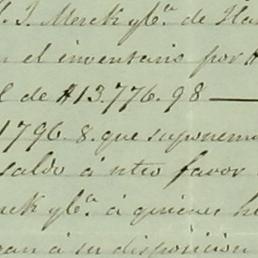 J. Merck y Ca. de Ha
el inventario por
de $13.776.98 —
1796.8. que suponem
saldo á ntro favor
erck y Ca. á quienes h
an á su disposicion